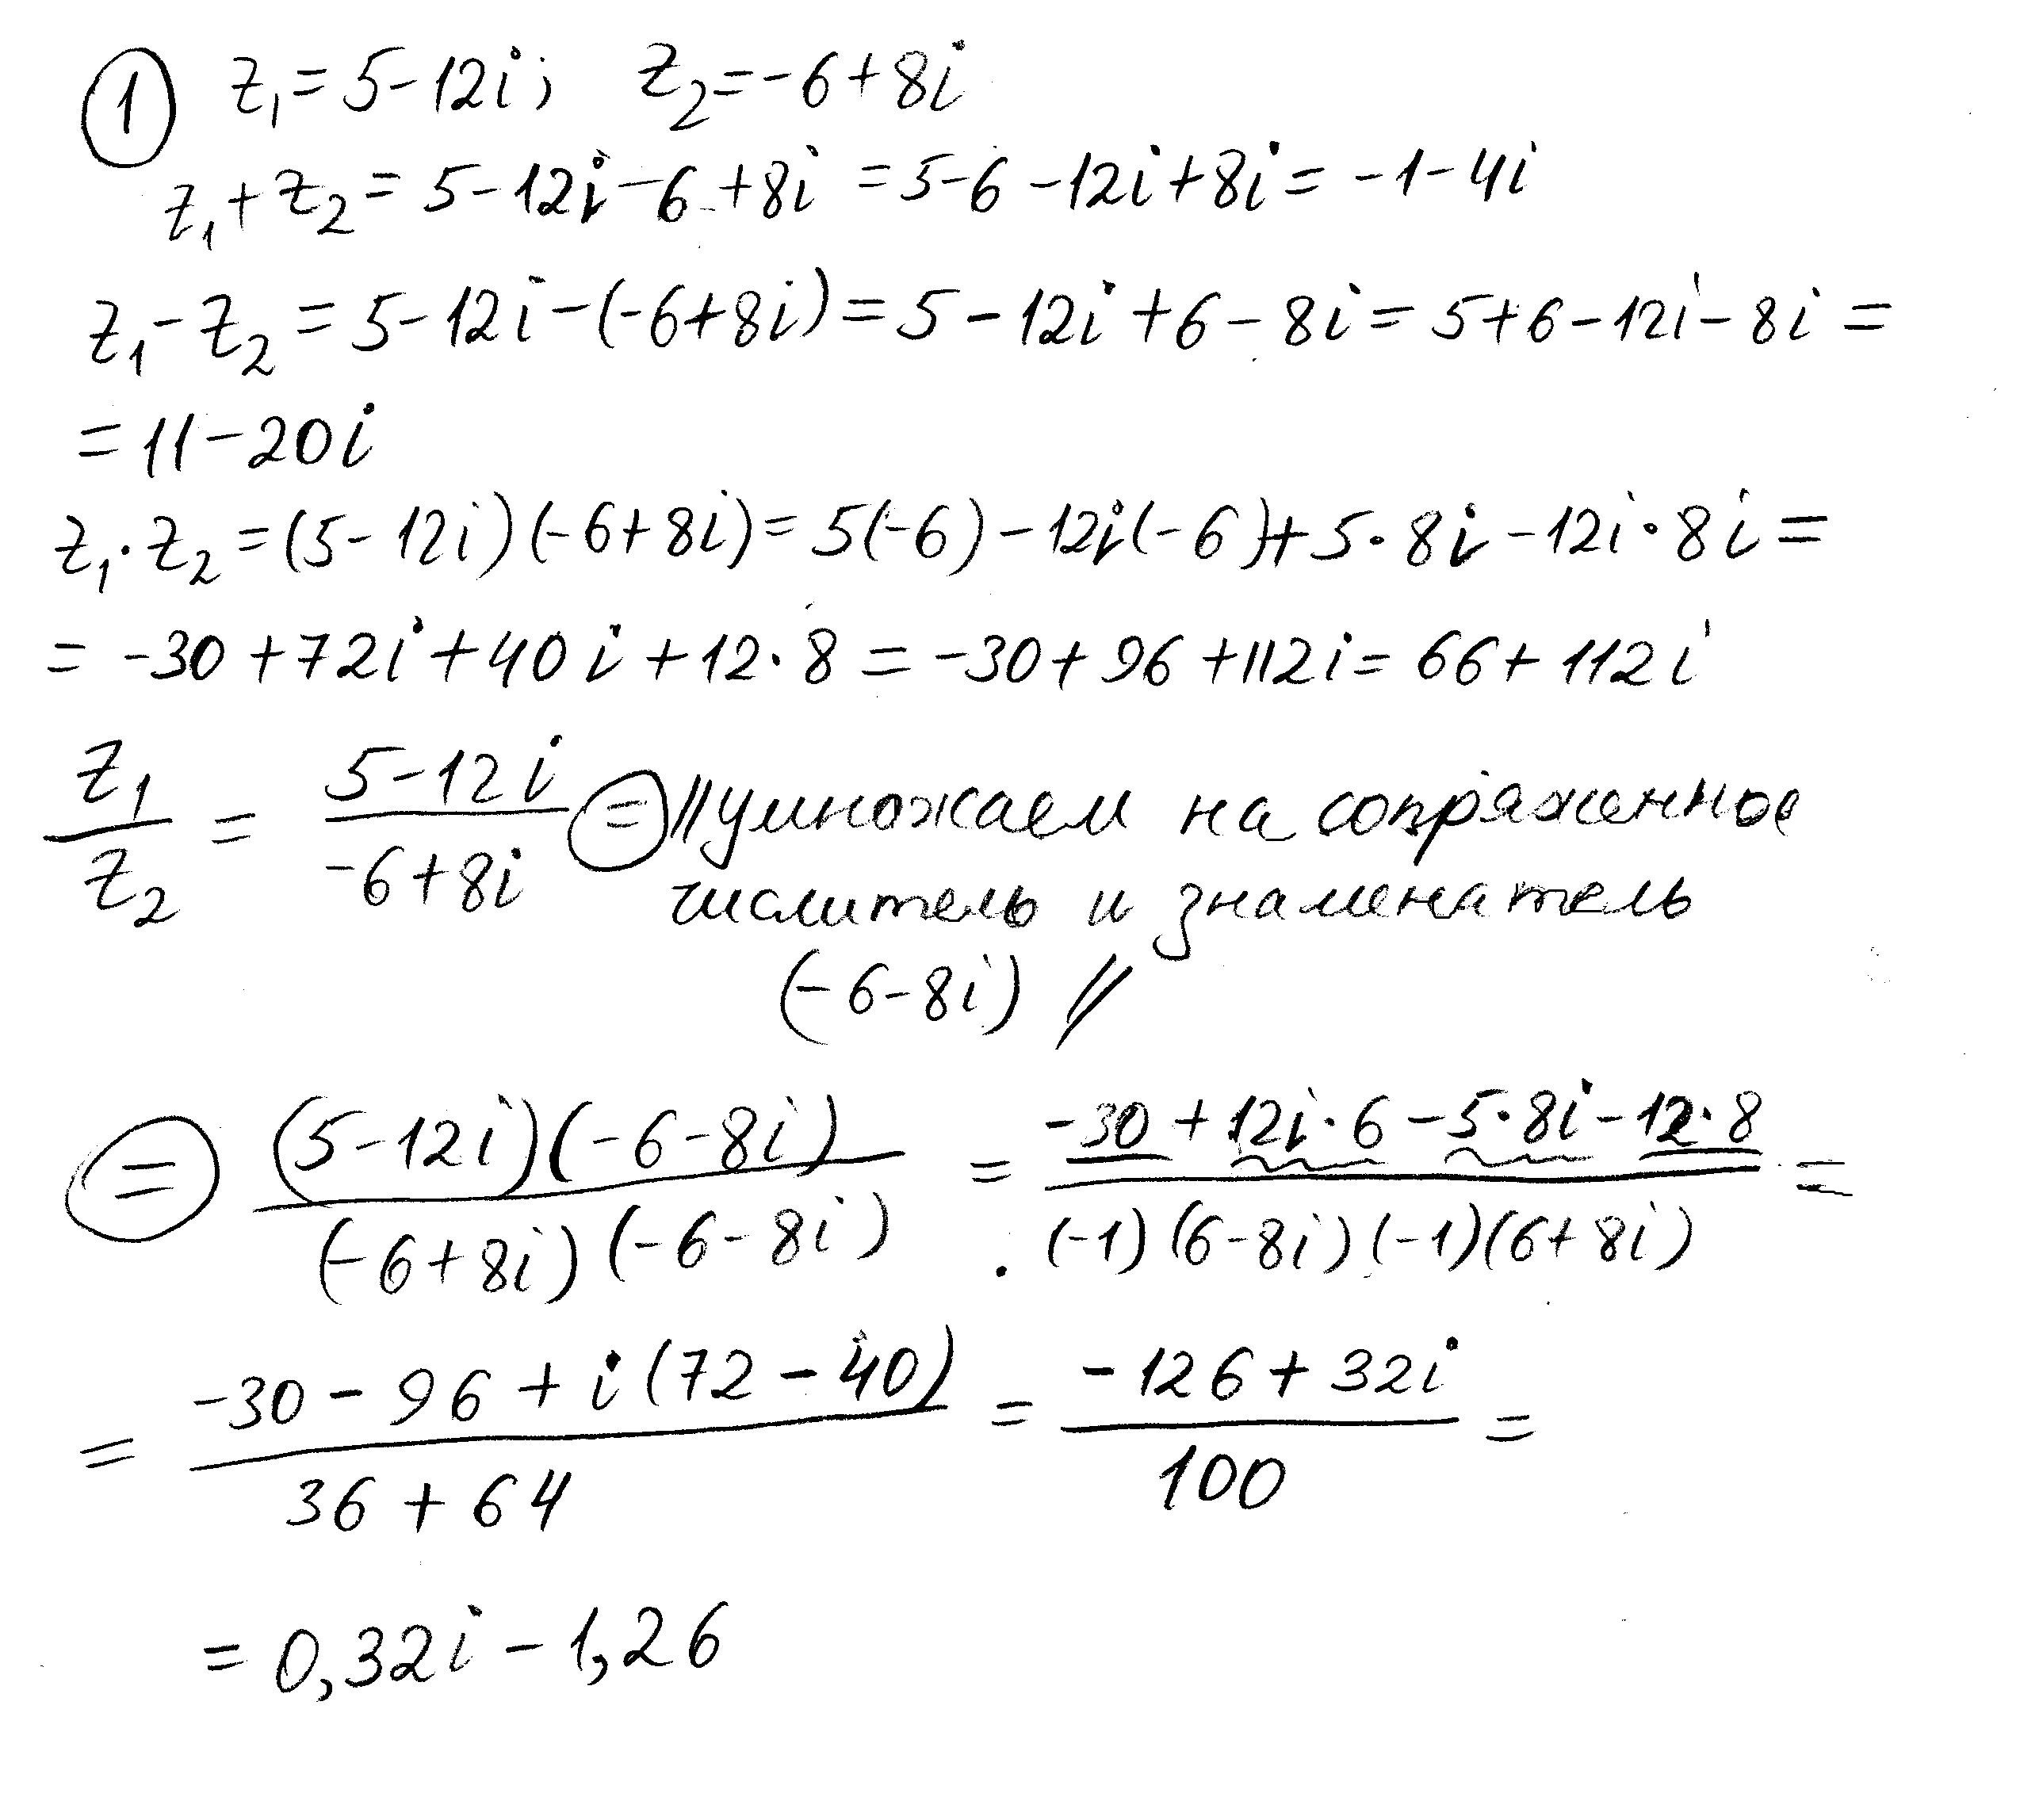 1 z₁ = 5 - 12i; z₂ = -6 + 8i
z₁ + z₂ = 5 - 12i - 6 + 8i = 5 - 6 - 12i + 8i = -1 - 4i
z₁ - z₂ = 5 - 12i - (-6 + 8i) = 5 - 12i + 6 - 8i = 5 + 6 - 12i - 8i =
= 11 - 20i
z₁ · z₂ = (5 - 12i)(-6 + 8i) = 5(-6) - 12i(-6) + 5 · 8i - 12i · 8i =
= -30 + 72i + 40i + 12 · 8 = -30 + 96 + 112i = 66 + 112i
z₁/z₂ = (5 - 12i)/(-6 + 8i) = // умножаем на сопряженное
числитель и знаменатель
(-6 - 8i) //
= ((5 - 12i)(-6 - 8i))/((-6 + 8i)(-6 - 8i)) = (-30 + 12i · 6 - 5 · 8i - 12 · 8)/((-1)(6 - 8i)(-1)(6 + 8i)) =
= (-30 - 96 + i(72 - 40))/(36 + 64) = (-126 + 32i)/100 =
= 0,32i - 1,26